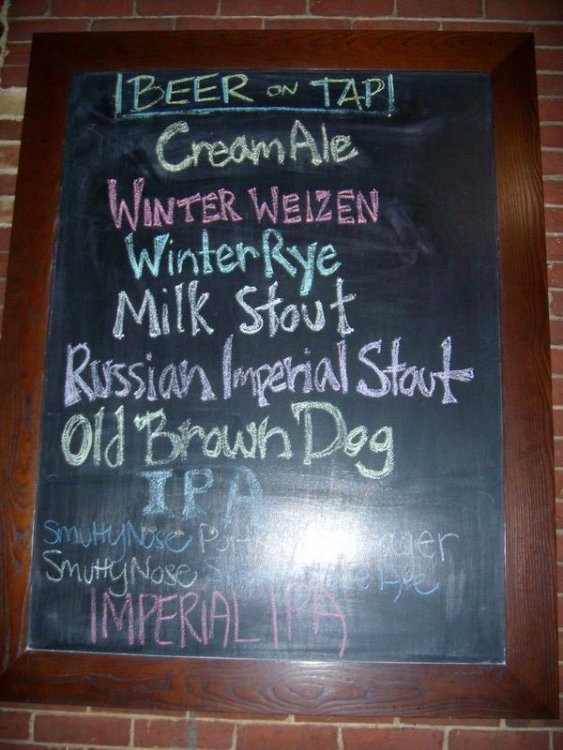 BEER ON TAP
Cream Ale
WINTER WEIZEN
Winter Rye
Milk Stout
Russian Imperial Stout
Old Brown Dog
IPA
SmuttyNose
SmuttyNose
IMPERIAL IPA